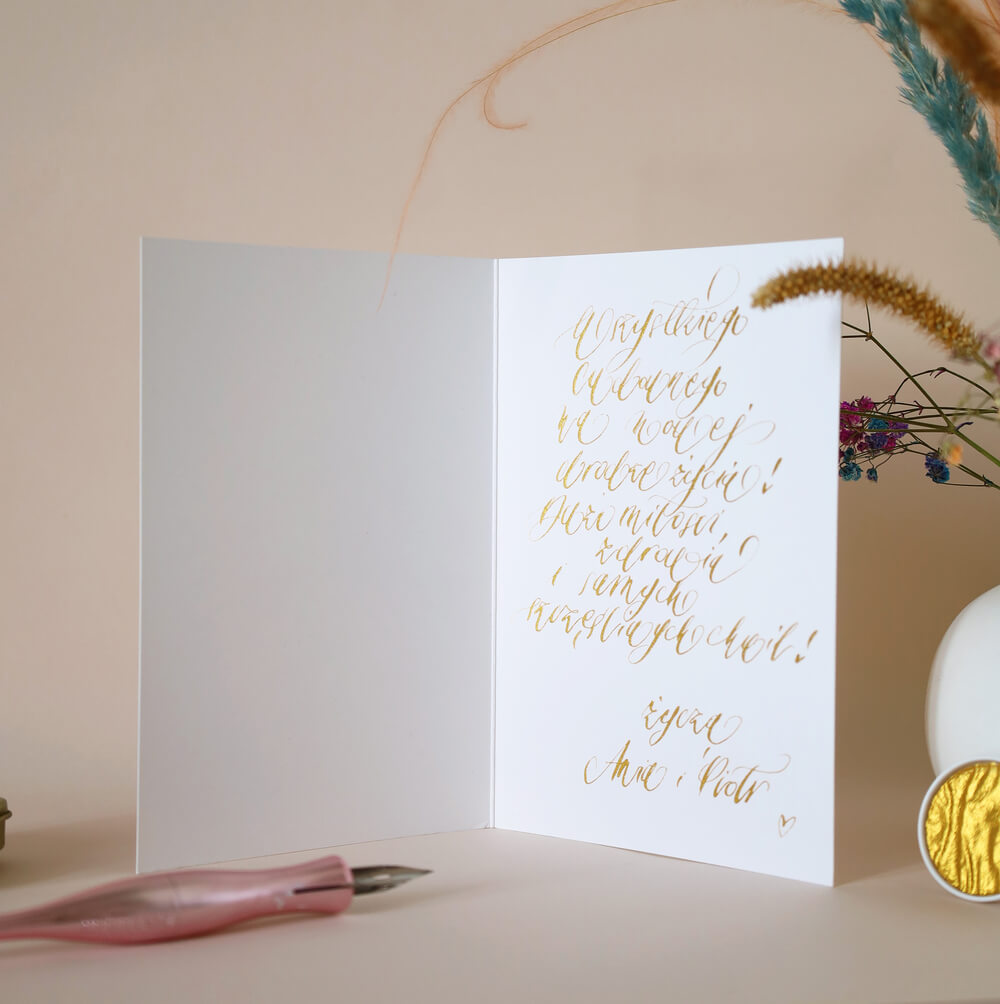 Wszystkiego
cudownego
na nowej
drodze życia!
Dużo miłości,
zdrowia
i samych
szczęśliwych chwil!
życzą
Ania i Piotr